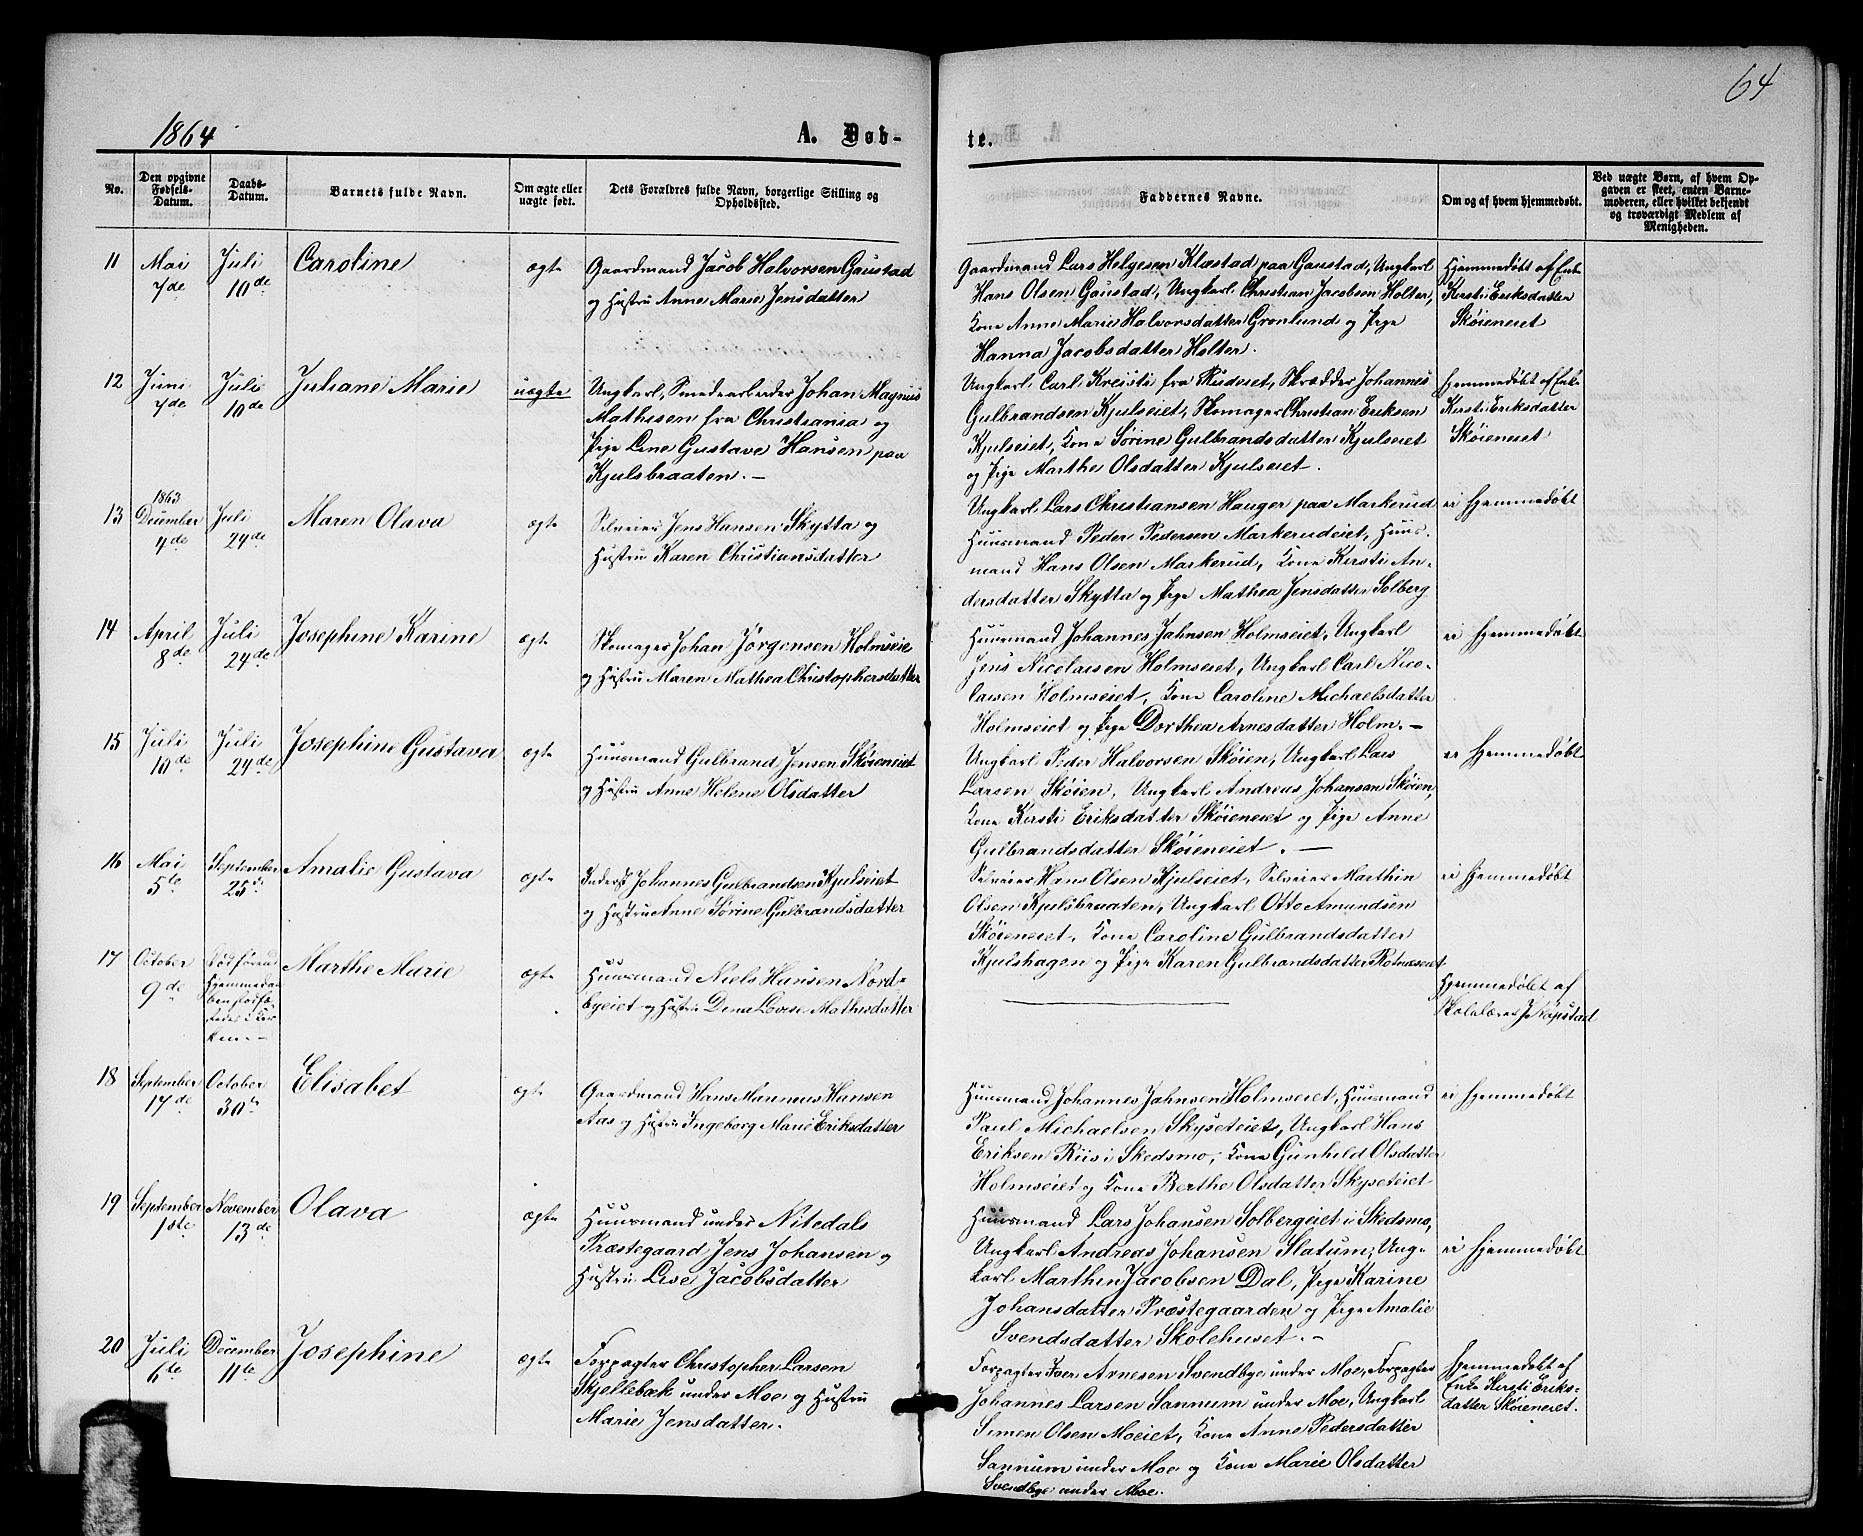 64
1864
A. Døb-
te.
No.
Den opgivne
Fødsels-
Datum.
Daabs-
Datum.
Barnets fulde Navn.
Om ægte eller
uægte født.
Dets Forældres fulde Navn, borgerlige Stilling og
Opholdssted.
Faddernes Navne.
Om og af hvem hjemmedøbt.
Ved uægte Børn, af hvem Op-
gaven er skeet, enten Barne-
moderen, eller hvilket bekjendt
og troværdigt Medlem af
Menigheden.
11
Mai
7de
Juli
10de
Caroline
ægte
Gaardmand Jacob Halvorsen Gaustad
og Hustru Anne Marie Jensdatter
Gaardmand Lars Helgesen Klæstad paa Gaustad, Ungkarl
Hans Olsen Gaustad, Ungkarl Christian Jacobsen Holter,
Kone Anne Marie Halvorsdatter Grønlund og Pige
Hanna Jacobsdatter Holter.
Hjemmedøbt af Enke
Kirsti Eriksdatter
Skøieneiet
12
Juni
7de
Juli
10de
Juliane Marie
uægte
Ungkarl, Smedearbeider Johan Magnus
Mathisen fra Christiania og
Pige Lene Gustave Hansen paa
Kjulsbraaten. –
Ungkarl Carl fra Rudseiet, Skrædder Johannes
Gulbrandsen Kjulseiet, Skomager Christian Eriksen
Kjulseiet, Kone Sørine Gulbrandsdatter Kjulseiet
og Pige Marthe Olsdatter Kjulseiet.
Hjemmedøbt af Enke
Kirsti Eriksdatter
Skøieneiet
13
1863
December
4de
Juli
24de
Maren Olava
ægte
Selveier Jens Hansen Skytta og
Hustru Karen Christiansdatter
Ungkarl Lars Christiansen Hauger paa Markerud
Huusmand Peder Pedersen Markerudeiet, Huus-
mand Hans Olsen Markerud, Kone Kirsti An-
dersdatter Skytta og Pige Mathea Jensdatter Solberg
ei Hjemmedøbt
14
April
8de
Juli
24de
Josephine Karine
ægte
Skomager Johan Jörgensen Holmseie
og Hustru Maren Mathea Christophersdatter
Huusmand Johannes Jahnsen Holmseiet, Ungkarl
Jens Nicolaisen Holmseiet, Ungkarl Carl Nico-
laisen Holmseiet, Kone Caroline Michaelsdatter
Holmseiet og Pige Dorthea Arnesdatter Holm. –
ei Hjemmedøbt
15
Juli
10de
Juli
24de
Josephine Gustava
ægte
Huusmand Gulbrand Jensen Skøieneiet
og Hustru Anne Helene Olsdatter
Ungkarl Peder Halvorsen Skøien, Ungkarl Lars
Larsen Skøien, Ungkarl Andreas Johansen Skøien,
Kone Kirsti Eriksdatter Skøieneiet og Pige Anne
Gulbrandsdatter Skøieneiet. –
ei Hjemmedøbt
16
Mai
5te
September
25de
Amalie Gustava
ægte
Inderst Johannes Gulbrandsen Kjulseiet
og Hustru Anne Sørine Gulbrandsdatter
Selveier Hans Olsen Kjulseiet, Selveier Marthin
Olsen Kjulsbraaten, Ungkarl Otto Amundsen
Skøieneiet, Kone Caroline Gulbrandsdatter
Kjulshagen og Pige Karen Gulbrandsdatter Rotnæseiet
ei Hjemmedøbt
17
October
9de
Død førend
Hjemmedaa-
ben stadfæ-
stedes i Kir-
ken. –
Marthe Marie
ægte
Huusmand Niels Hansen Nord-
byeiet og Hustru Dina Lovise Mathisdatter
Hjemmedøbt af
Skolelærer J. Nøpstad
18
September
17de
October
30te
Elisabet
ægte
Gaardmand Hans Mannus Hansen
Aas og Hustru Ingeborg Marie Eriksdatter
Huusmand Johannes Jahnsen Holmseiet, Huusmand
Paul Michaelsen Skyseteiet, Ungkarl Hans
Eriksen Riis i Skedsmo, Kone Gunhild Olsdatter
Holmseiet og Kone Berthe Olsdatter Skyseteiet
ei Hjemmedøbt
19
September
1ste
November
13de
Olava
ægte
Huusmand under Nitedals
Præstegaard Jens Johansen og
Hustru Lise Jacobsdatter
Huusmand Lars Johansen Solbergeiet i Skedsmo,
Ungkarl Andreas Johansen Slatum, Ung-
karl Marthin Jacobsen Dal, Pige Karine
Johansdatter Præstegaarden og Pige Amalie
Svendsdatter Skolehuset. –
ei Hjemmedøbt
20
Juli
6te
December
11te
Josephine
ægte
Forpagter Christopher Larsen
Skjellebæk under Moe og Hustru
Marie Jensdatter.
Forpagter Iver Arnesen Svendbye under Moe, Forpagter
Johannes Larsen Sannum under Moe, Ungkarl
Simen Olsen Moeiet, Kone Anne Pedersdatter
Sannum under Moe og Kone Marie Olsdatter
Svendbye under Moe.
Hjemmedøbt af
Enke Kirsti Eriks-
datter Skøieneiet.